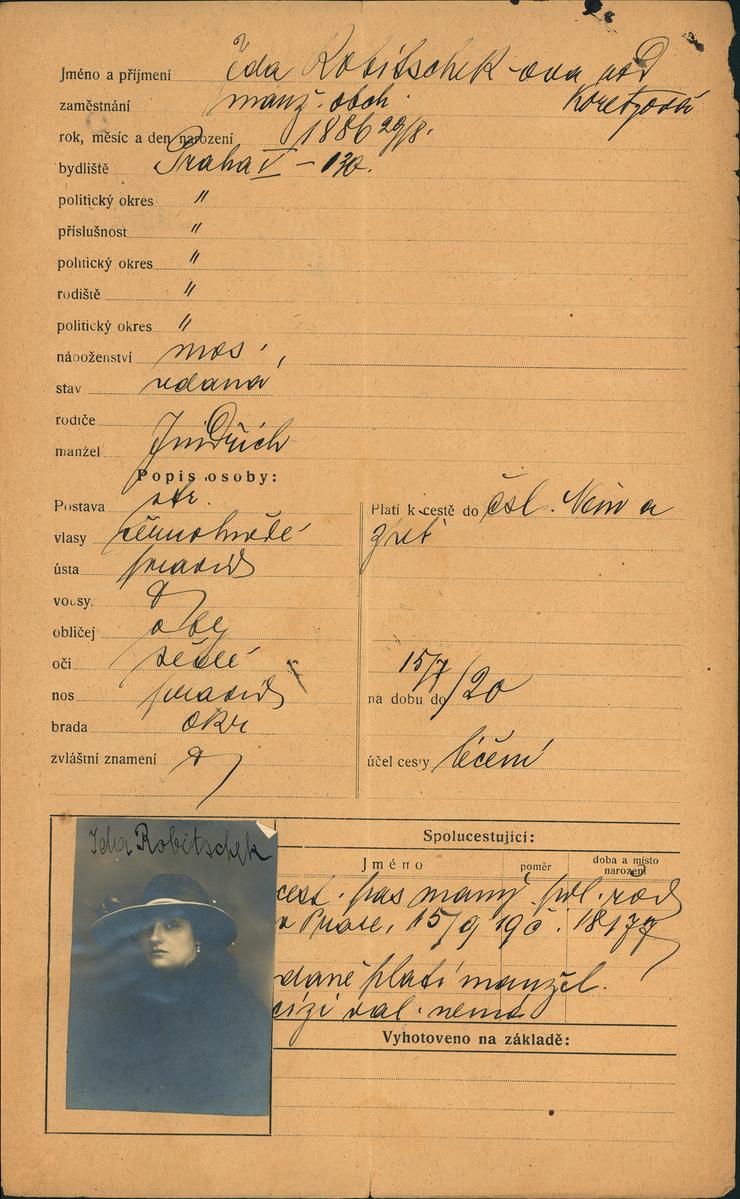 Jméno a příjmení Ida Robitschek-ova roz
zaměstnání manž. obch. Koretzová
rok, měsíc a den narození 1886 29/8.
bydliště Praha V – 130.
politický okres "
příslušnost "
politický okres "
rodiště "
politický okres "
náboženství mos.
stav vdaná
rodiče
manžel Jindřich
Popis osoby:
Postava stř.
vlasy černohnědé
ústa pravid
vousy
obličej obl
oči šedé
nos pravid
brada okr
zvláštní znamení
Platí k cestě do čsl. Něm a
zpět
na dobu do 15/7/20
účel cesty léčení
Ida Robitschek
Spolucestující:
Jméno poměr doba a místo narození
cest. pas pol. řed
v Praze, 15/9 19 18177
daně platí manžel.
cizí val. nemá
Vyhotoveno na základě: